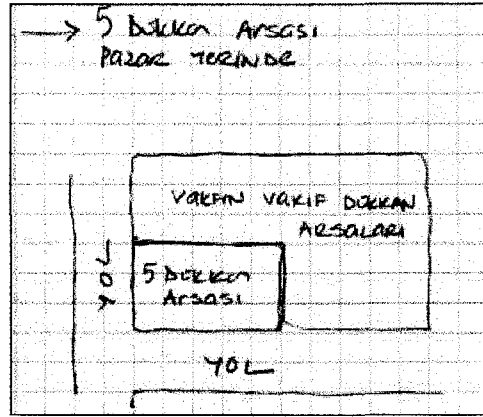 → 5 Dükkan Arsası
Pazar YERİNDE
VAKFIN VAKIF DÜKKAN
ARSALARI
YOL
5 Dükkan
Arsası
YOL